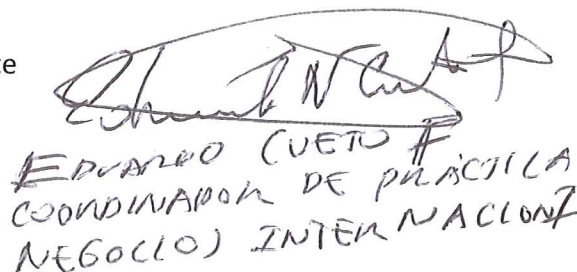 te
EDUARDO CUETO F
COORDINADOR DE PRÁCTICA
NEGOCIOS INTERNACION